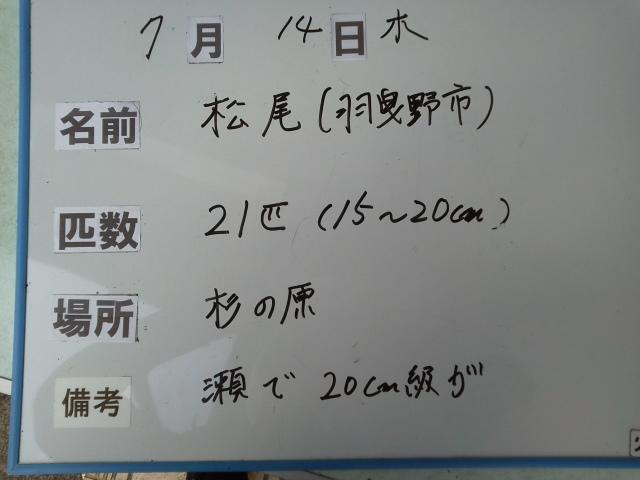 7月 14日 木
名前 松尾(羽曳野市)
匹数 21匹 (15~20cm)
場所 杉の原
備考 瀬で 20cm級が